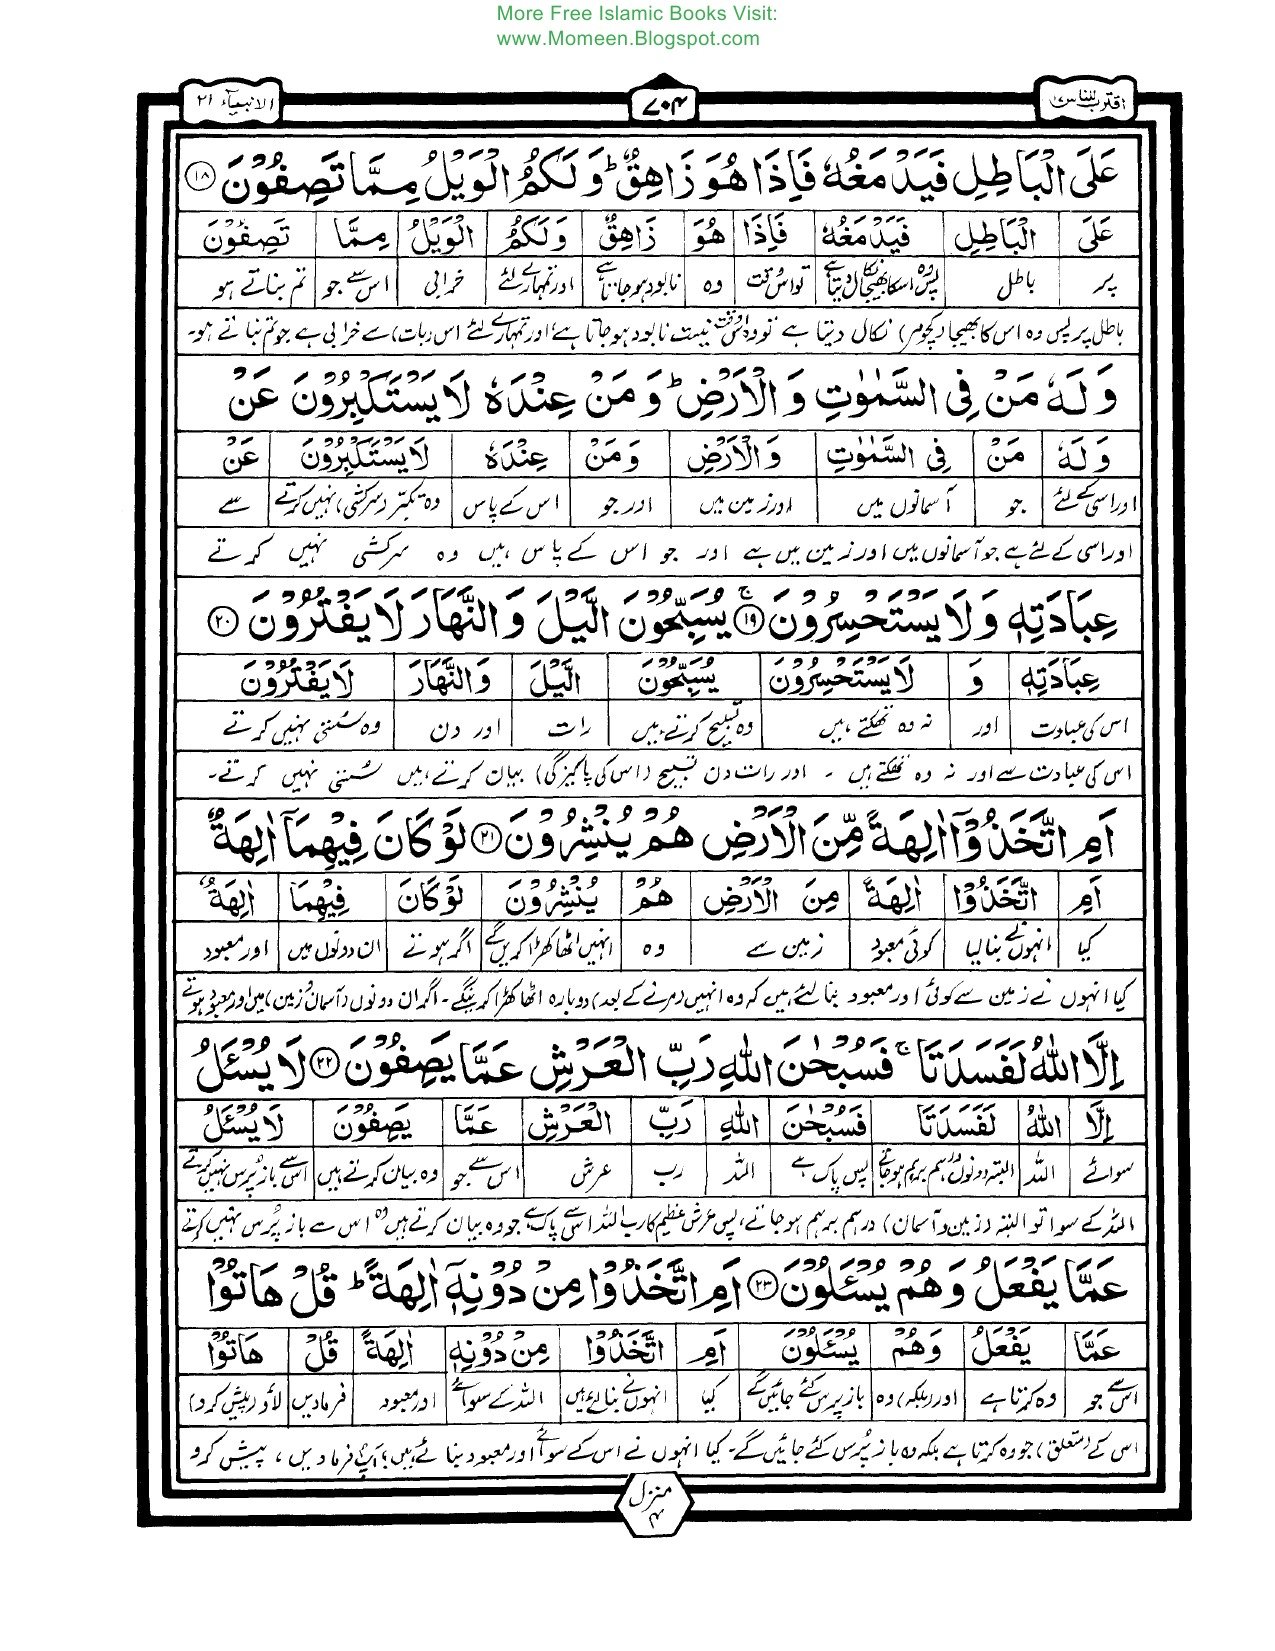 More Free Islamic Books Visit:
www.Momeen.Blogspot.com
اقترب للناس ١٧ ۷۰۴ الانبیآء ۲۱
عَلَى الْبَاطِلِ فَيَدْمَغُهٗ فَاِذَا هُوَ زَاهِقٌ ؕ وَلَكُمُ الْوَيْلُ مِمَّا تَصِفُوْنَ ﴿۱۸﴾
عَلَى الْبَاطِلِ فَيَدْمَغُهٗ فَاِذَا هُوَ زَاهِقٌ وَلَكُمُ الْوَيْلُ مِمَّا تَصِفُوْنَ
پر باطل پس وہ اسکا بھیجا نکال دیتا ہے تو اس وقت وہ نابود ہو جاتا ہے اور تمہارے لئے خرابی اس سے جو تم بناتے ہو
باطل پر پس وہ اس کا بھیجا (کچومر) نکال دیتا ہے تو وہ اس وقت نیست نابود ہو جاتا ہے اور تمہارے لئے اس (بات) سے خرابی ہے جو تم بناتے ہو۔
وَلَهٗ مَنْ فِى السَّمٰوٰتِ وَالْاَرْضِ ؕ وَمَنْ عِنْدَهٗ لَا يَسْتَكْبِرُوْنَ عَنْ
وَلَهٗ مَنْ فِى السَّمٰوٰتِ وَالْاَرْضِ وَمَنْ عِنْدَهٗ لَا يَسْتَكْبِرُوْنَ عَنْ
اور اسی کے لئے جو آسمانوں میں اور زمین میں اور جو اس کے پاس وہ تکبر (سرکشی) نہیں کرتے سے
اور اسی کے لئے ہے جو آسمانوں میں اور زمین میں ہے اور جو اس کے پاس ہیں وہ سرکشی نہیں کرتے
عِبَادَتِهٖ وَلَا يَسْتَحْسِرُوْنَ ﴿۱۹﴾ۚ يُسَبِّحُوْنَ الَّيْلَ وَالنَّهَارَ لَا يَفْتُرُوْنَ ﴿۲۰﴾
عِبَادَتِهٖ وَ لَا يَسْتَحْسِرُوْنَ يُسَبِّحُوْنَ الَّيْلَ وَالنَّهَارَ لَا يَفْتُرُوْنَ
اس کی عبادت اور نہ وہ تھکتے ہیں وہ تسبیح کرتے ہیں رات اور دن وہ سستی نہیں کرتے
اس کی عبادت سے اور نہ وہ تھکتے ہیں ۔ اور رات دن تسبیح (اس کی پاکیزگی) بیان کرتے ہیں سستی نہیں کرتے۔
اَمِ اتَّخَذُوْۤا اٰلِهَةً مِّنَ الْاَرْضِ هُمْ يُنْشِرُوْنَ ﴿۲۱﴾ لَوْ كَانَ فِيْهِمَاۤ اٰلِهَةٌ
اَمِ اتَّخَذُوْا اٰلِهَةً مِنَ الْاَرْضِ هُمْ يُنْشِرُوْنَ لَوْ كَانَ فِيْهِمَا اٰلِهَةٌ
کیا انہوں نے بنالیا کوئی معبود زمین سے وہ انہیں اٹھا کھڑا کریں گے اگر ہوتے ان دونوں میں اور معبود
کیا انہوں نے زمین سے کوئی اور معبود بنا لئے ہیں کہ وہ انہیں (مرنے کے بعد) دوبارہ اٹھا کھڑا کرینگے۔ اگر ان دونوں (آسمان و زمین) میں اور معبود ہوتے
اِلَّا اللّٰهُ لَفَسَدَتَا ۚ فَسُبْحٰنَ اللّٰهِ رَبِّ الْعَرْشِ عَمَّا يَصِفُوْنَ ﴿۲۲﴾ لَا يُسْئَلُ
اِلَّا اللّٰهُ لَفَسَدَتَا فَسُبْحٰنَ اللّٰهِ رَبِّ الْعَرْشِ عَمَّا يَصِفُوْنَ لَا يُسْئَلُ
سوائے اللہ البتہ دونوں درہم برہم ہو جاتے پس پاک ہے اللہ رب عرش اس سے جو وہ بیان کرتے ہیں اس سے باز پرس نہیں کرتے
اللہ کے سوا تو البتہ (زمین و آسمان) درہم برہم ہو جاتے، پس عرش عظیم کا رب اللہ اس سے پاک ہے جو وہ بیان کرتے ہیں وہ اس سے باز پرس نہیں کرتے
عَمَّا يَفْعَلُ وَهُمْ يُسْئَلُوْنَ ﴿۲۳﴾ اَمِ اتَّخَذُوْا مِنْ دُوْنِهٖۤ اٰلِهَةً ؕ قُلْ هَاتُوْا
عَمَّا يَفْعَلُ وَهُمْ يُسْئَلُوْنَ اَمِ اتَّخَذُوْا مِنْ دُوْنِهٖ اٰلِهَةً قُلْ هَاتُوْا
اس سے جو وہ کرتا ہے اور (بلکہ) وہ باز پرس کئے جائیں گے کیا انہوں نے بنالئے ہیں اللہ کے سوائے اور معبود فرمادیں لاؤ (پیش کرو)
اس کے (متعلق) جو وہ کرتا ہے بلکہ وہ باز پرس کئے جائیں گے۔ کیا انہوں نے اس کے سوائے اور معبود بنائے ہیں؟ آپ فرمادیں، پیش کرو
منزل ۴